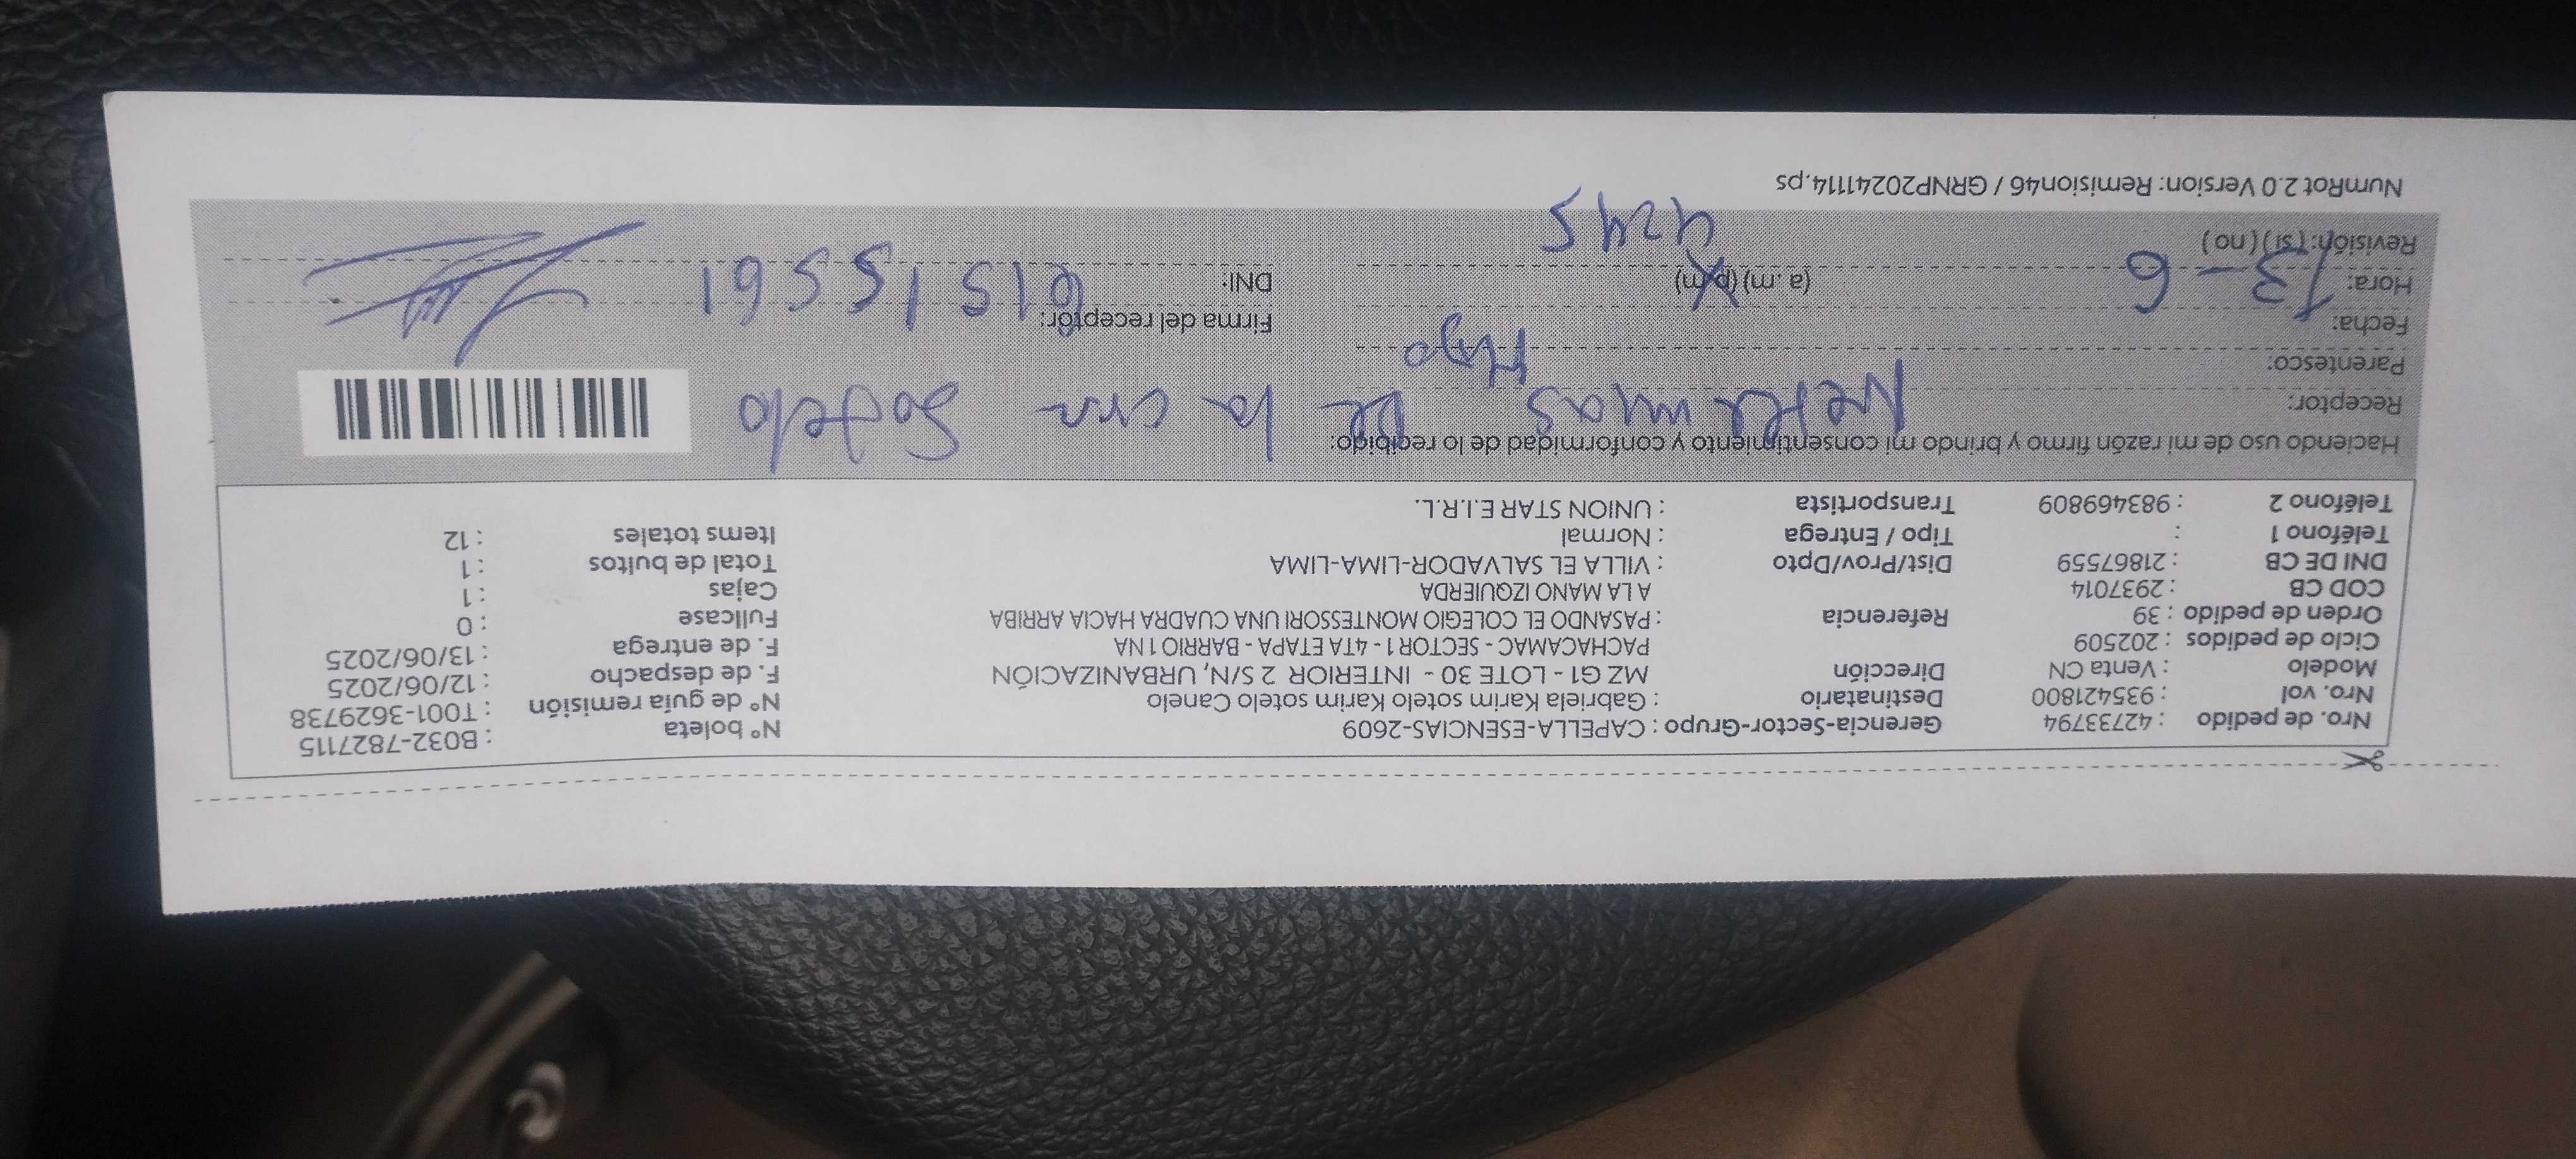 Nro. de pedido : 42733794 Gerencia-Sector-Grupo : CAPELLA-ESENCIAS-2609 N° boleta : B032-7827115
Nro. vol : 935421800 Destinatario : Gabriela Karim sotelo Karim sotelo Canelo N° de guía remisión : T001-3629738
Modelo : Venta CN Dirección MZ G1 - LOTE 30 - INTERIOR 2 S/N, URBANIZACIÓN F. de despacho : 12/06/2025
Ciclo de pedidos : 202509 PACHACAMAC - SECTOR1 - 4TA ETAPA - BARRIO 1 NA F. de entrega : 13/06/2025
Orden de pedido : 39 Referencia : PASANDO EL COLEGIO MONTESSORI UNA CUADRA HACIA ARRIBA Fullcase : 0
COD CB : 2937014 A LA MANO IZQUIERDA Cajas : 1
DNI DE CB : 21867559 Dist/Prov/Dpto : VILLA EL SALVADOR-LIMA-LIMA Total de bultos : 1
Teléfono 1 : Tipo / Entrega : Normal Items totales : 12
Teléfono 2 : 983469809 Transportista : UNION STAR E.I.R.L.
Haciendo uso de mi razón firmo y brindo mi consentimiento y conformidad de lo recibido:
Receptor: De la cruz Sotelo
Parentesco: Hijo
Fecha: 13-6 Firma del receptor:
Hora: (a. m) (p. m) DNI: 61515561
Revisión: ( si ) ( no ) 4245
NumRot 2.0 Version: Remision46 / GRNP20241114.ps